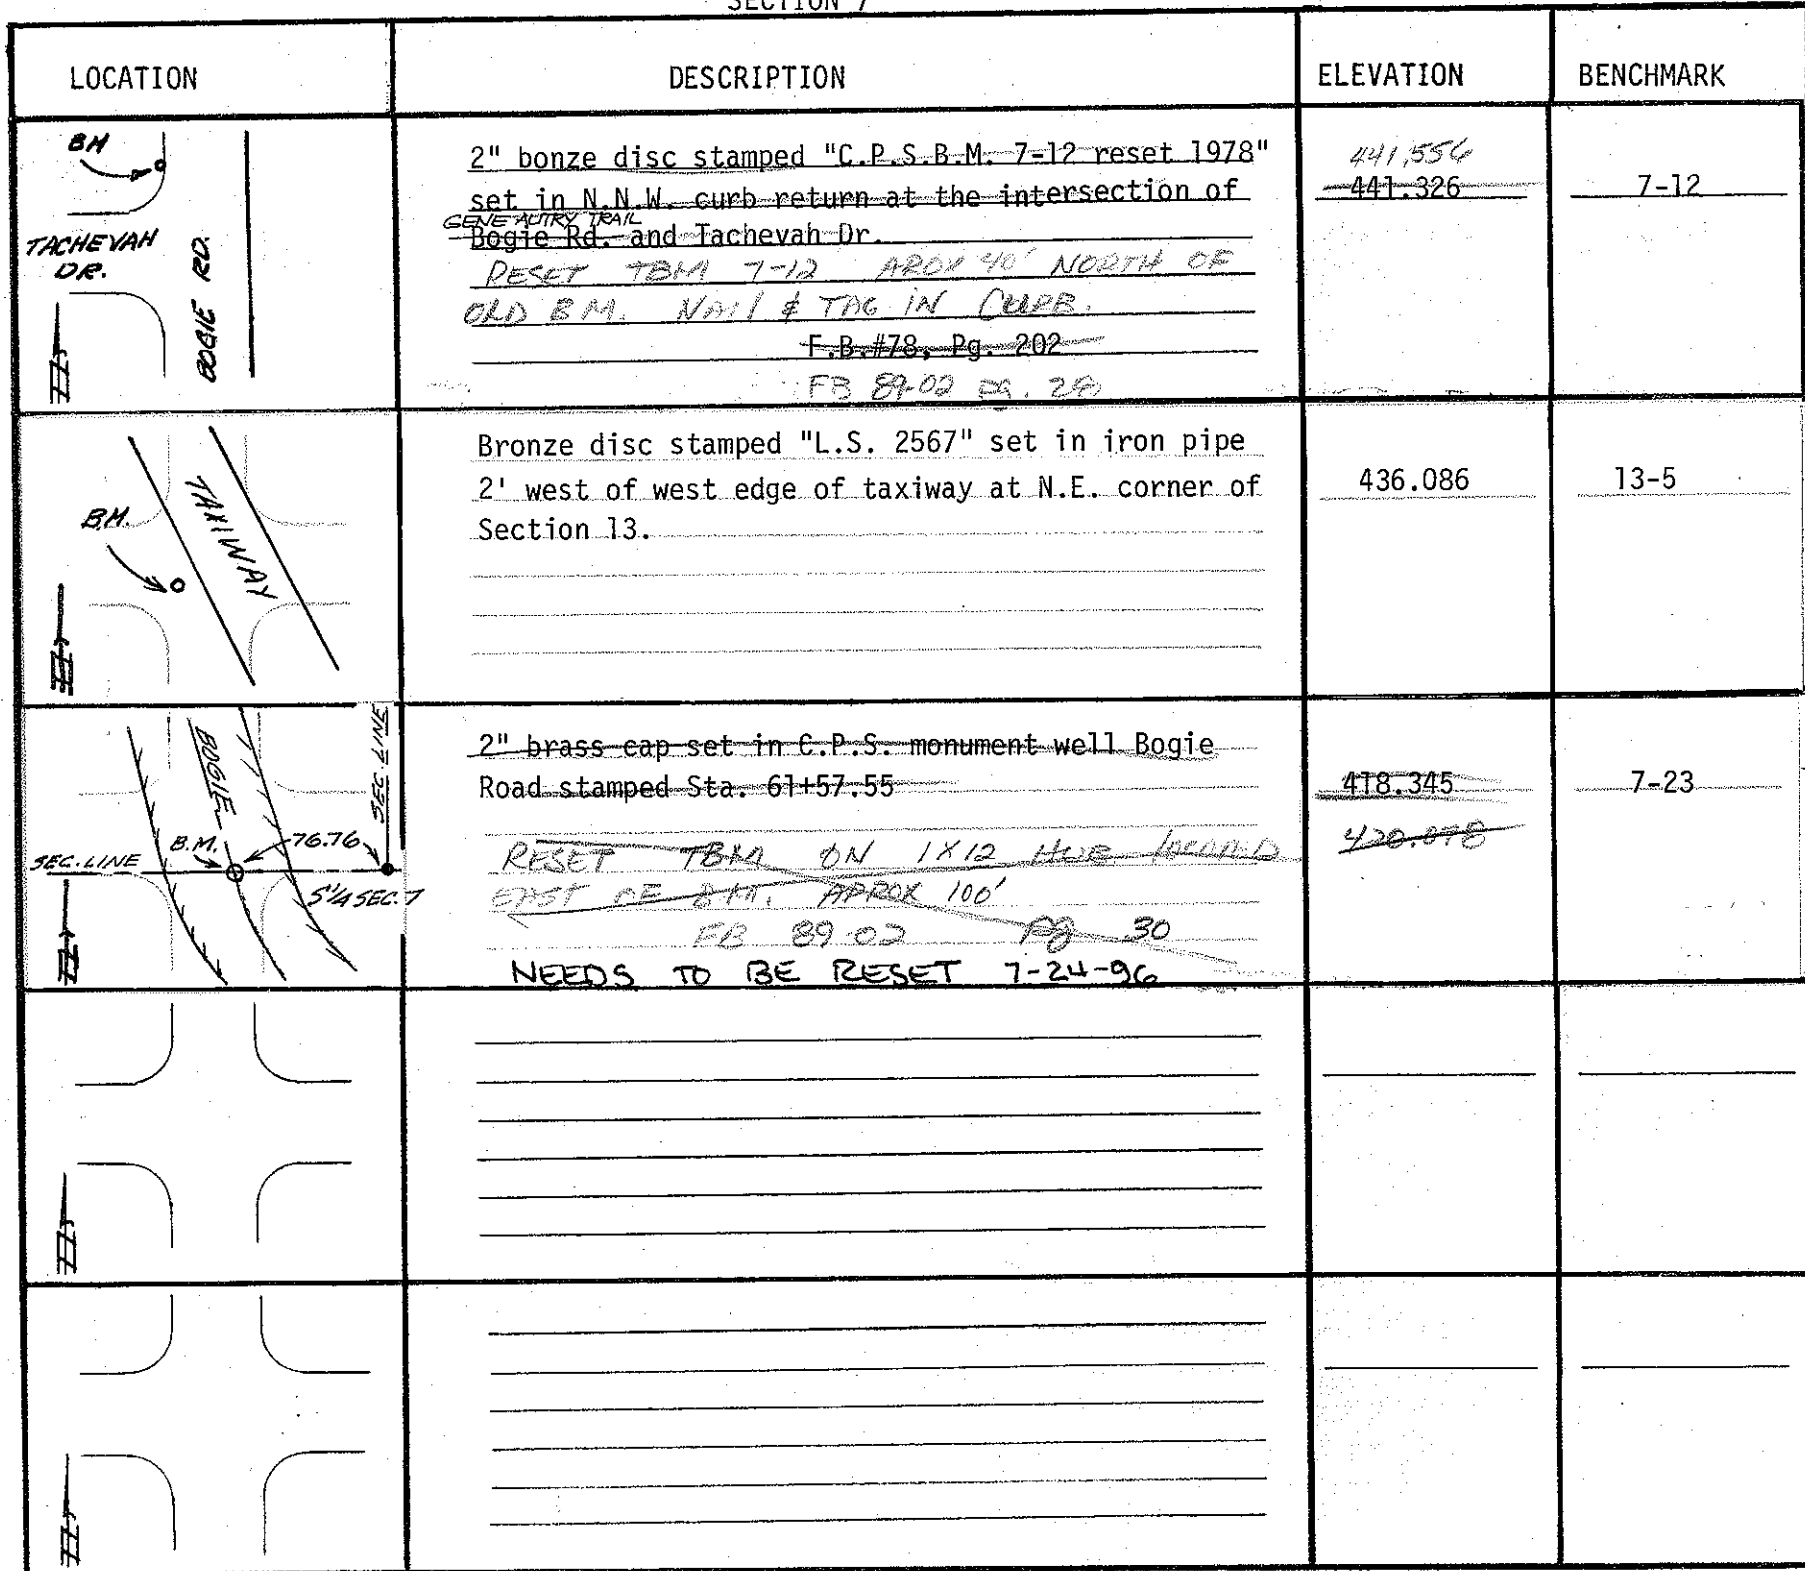 SECTION 7
LOCATION DESCRIPTION ELEVATION BENCHMARK
BM
TACHEVAH
DR.
BOGIE RD.
2" bonze disc stamped "C.P.S.B.M. 7-12 reset 1978"
set in N.N.W. curb return at the intersection of
GENE AUTRY TRAIL
Bogie Rd. and Tachevah Dr.
RESET TBM 7-12 AROX 40' NORTH OF
OLD BM. NAIL & TAG IN CURB.
F.B.#78, Pg. 202
FB 89-02 pg.
441.556
441.326
7-12
B.M.
TAXIWAY
Bronze disc stamped "L.S. 2567" set in iron pipe
2' west of west edge of taxiway at N.E. corner of
Section 13.
436.086
13-5
BOGIE
SEC. LINE
B.M.
76.76
SEC. LINE
S'1/4 SEC. 7
2" brass cap set in C.P.S. monument well Bogie
Road stamped Sta. 61+57.55
RESET TBM ON 1X12
EAST OF B.M. APPROX 100'
FB 89-02 Pg 30
NEEDS TO BE RESET 7-24-96
418.345
420.078
7-23